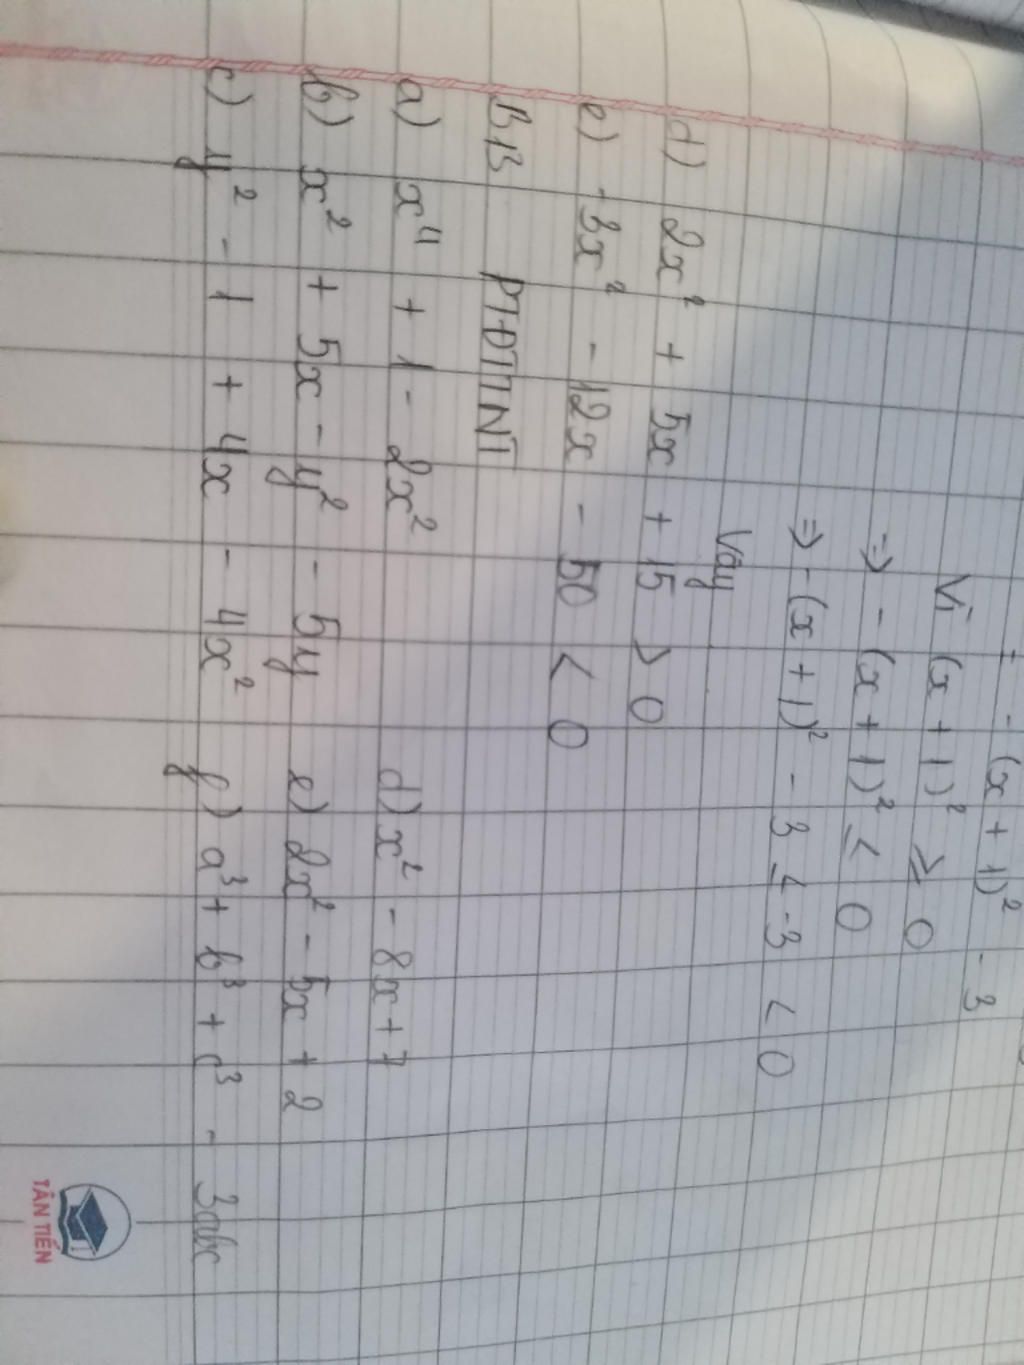 = - (x + 1)² - 3
Vì (x + 1)² ≥ 0
=> - (x + 1)² ≤ 0
=> -(x + 1)² - 3 ≤ -3 < 0
Vậy
d) 2x² + 5x + 15 > 0
e) -3x² - 12x - 50 < 0
B13 PTĐTTNT
a) x⁴ + 1 - 2x² d) x² - 8x + 7
b) x² + 5x - y² - 5y e) 2x² - 5x + 2
c) y² - 1 + 4x - 4x² f) a³ + b³ + c³ - 3abc
TÂN TIẾN